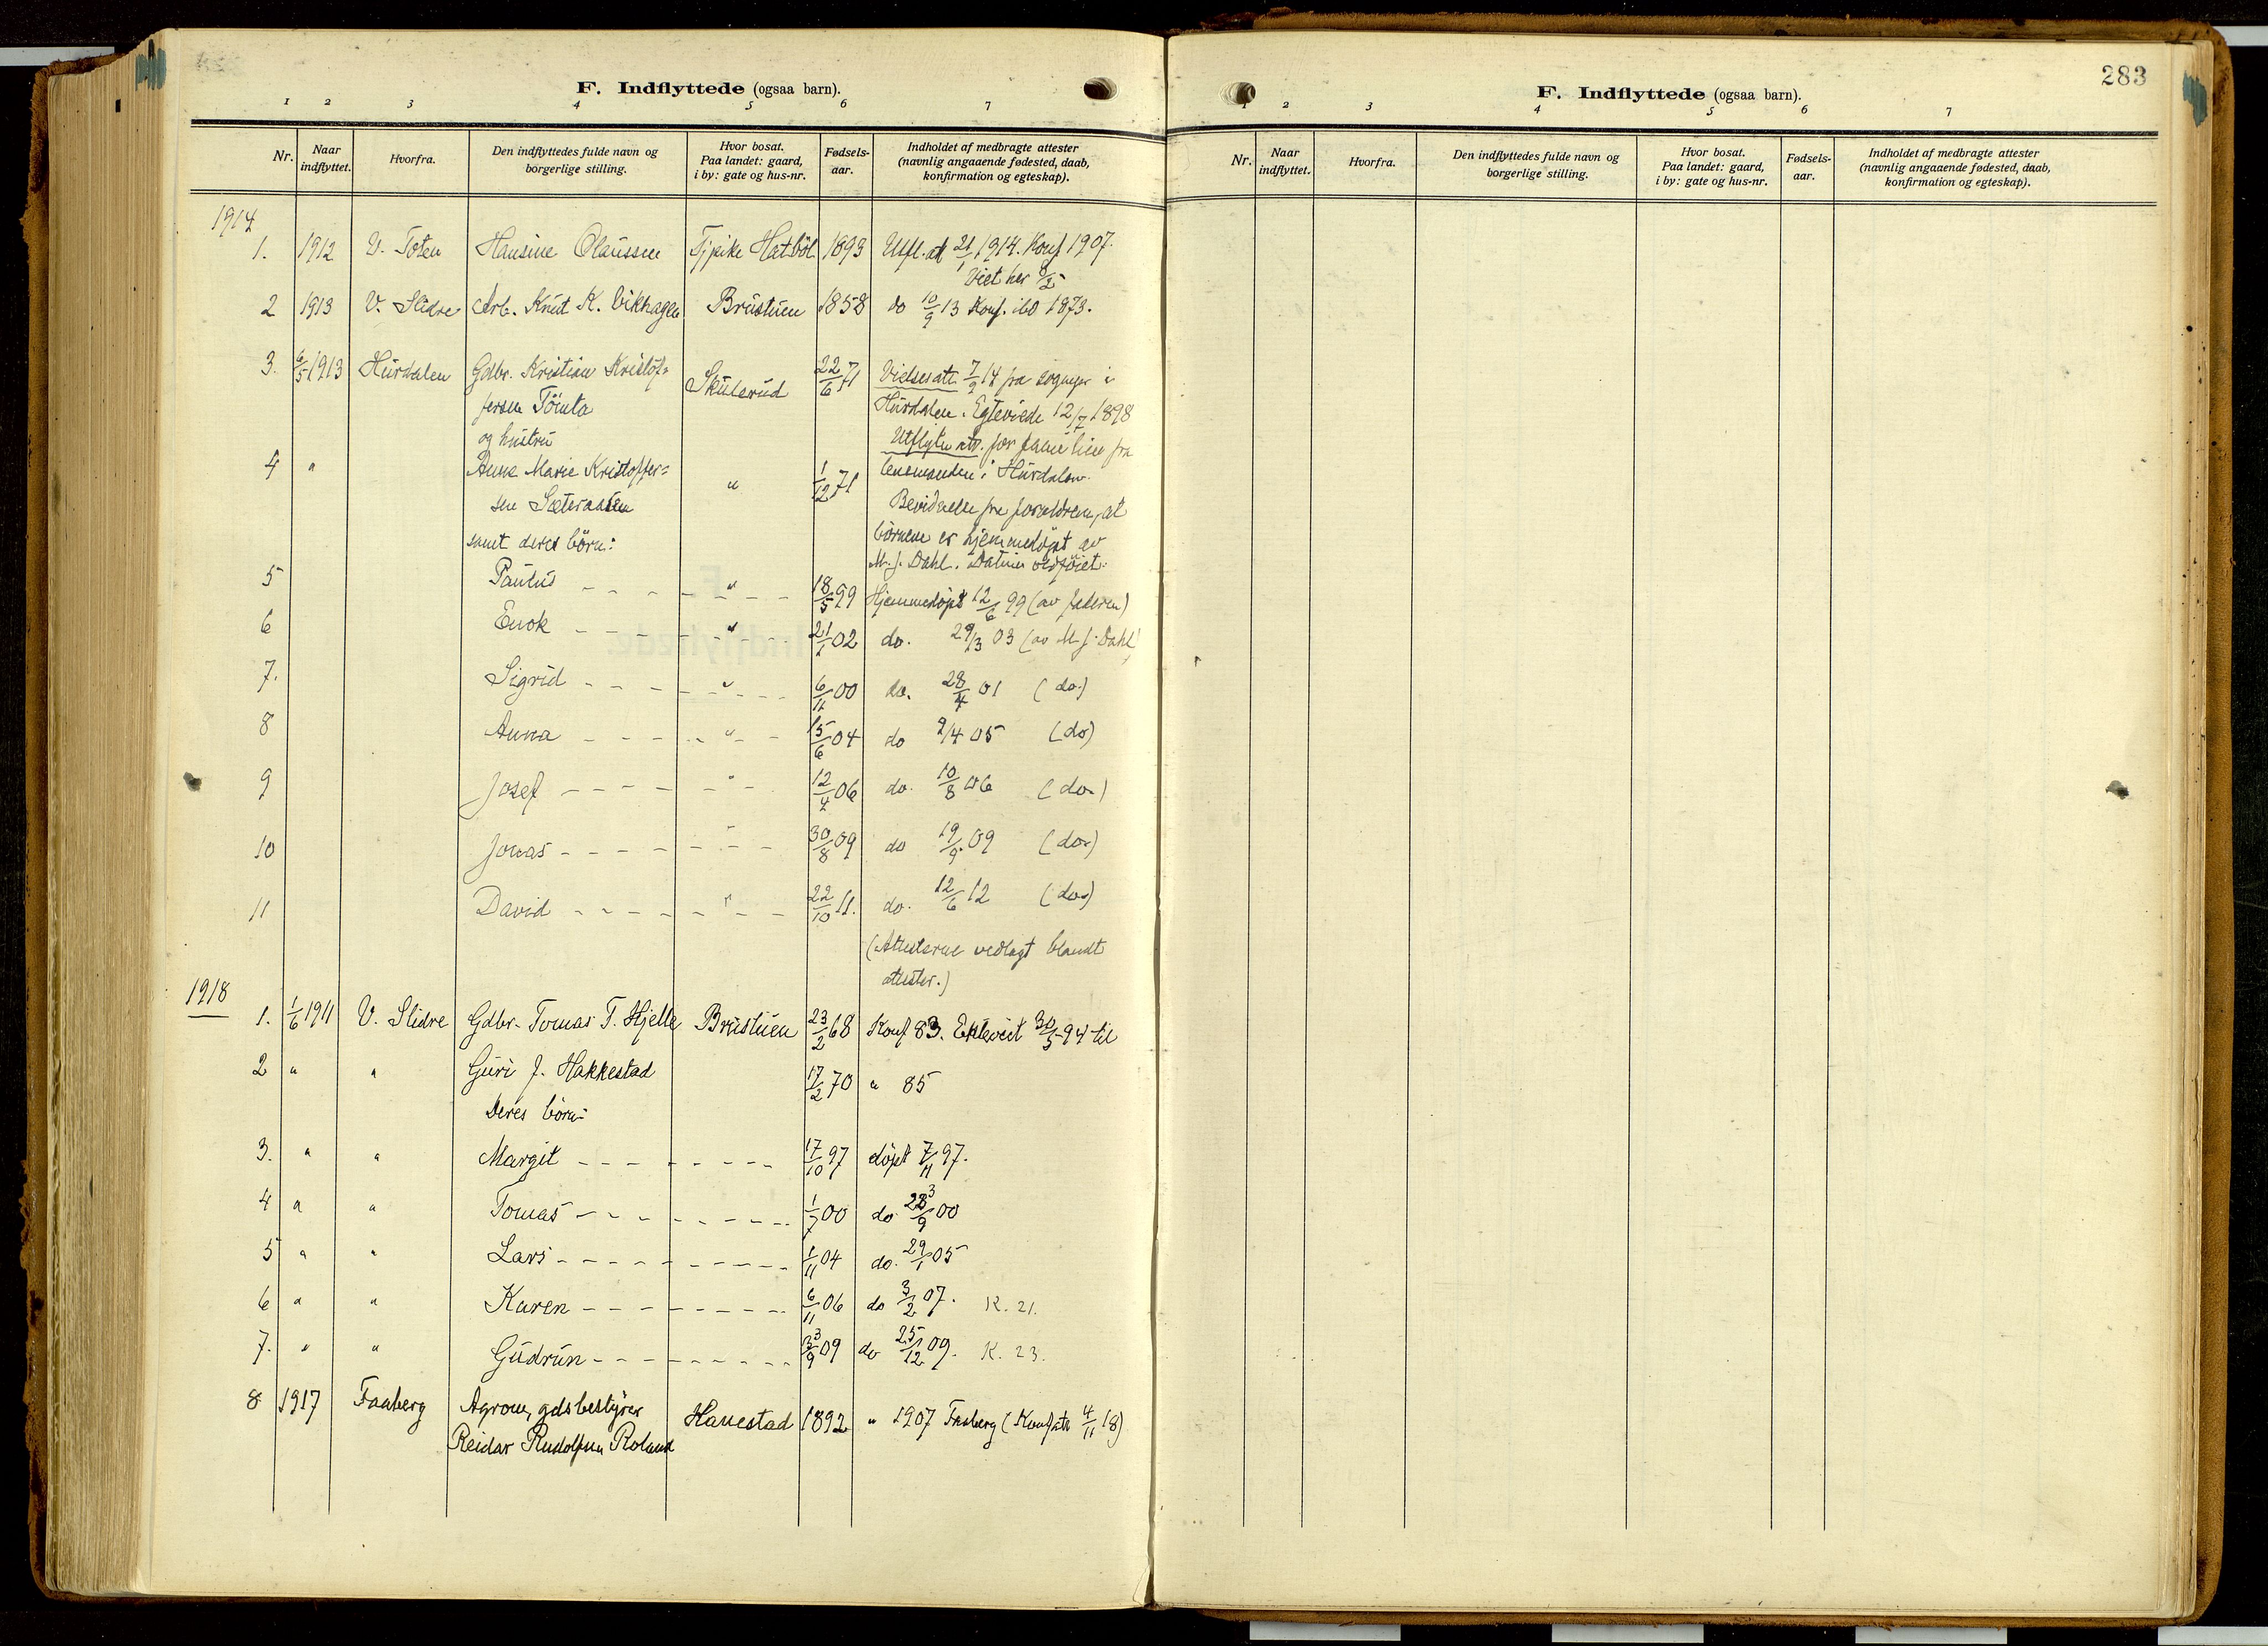 F. Indflyttede (ogsaa barn).
1 2 3 4 5 6 7
Nr. Naar indflyttet. Hvorfra. Den indflyttedes fulde navn og borgerlige stilling. Hvor bosat. Paa landet: gaard, i by: gate og hus-nr. Fødsels-aar. Indholdet af medbragte attester (navnlig angaaende fødested, daab, konfirmation og egteskap).
1914
1. 1912 V. Toten Hansine Olaussen Tjpike Hatböl 1893 Utfl. att 21/1 1914. Konf 1907.
Viet her 8/2
2 1913 V. Slidre Arb. Knut K. Vikhagen Brustuen 1858 do 10/9 13 Konf. ibd 1873.
3. 6/5 1913 Hurdalen Gdbr. Kristian Kristof- Skuterud 22/6 71 Vielsesatt. 7/2 14 fra sognepr i
fersen Tömta Hurdalen. Egteviede 12/7 1898
og hustru Utflytn att. for familien fra
4 " Anne Marie Kristoffer= " 1/12 71 lensmanden i Hurdalen.
sen Sæteraasen Bevidnelse fra forældrene, at
samt deres börn: börnene er hjemmedöpt av
M. J. Dahl. Datoer vedföiet.
5 Paulus " 18/5 99 Hjemmedöpt 12/6 99 (av faderen)
6 Enok " 21/1 02 do. 29/3 03 (av M J. Dahl)
7. Sigrid " 6/11 00 do. 28/4 01 (do)
8 Anna " 15/6 04 do 9/4 05 (do)
9 Josef " 12/4 06 do. 10/8 06 (do)
10 Jonas " 30/8 09 do 19/9 09 (do)
11 David " 22/10 11. do. 12/6 12 (do)
(Attesterne vedlagt blandt
attester.)
1918
1. 1/6 1911 V. Slidre Gdbr. Tomas T. Hjelle Brustuen 23/2 68 Konf 83. Ekteviet 30/5 94 til
2 " " Guri J. Hakkestad 17/2 70 " 85
Deres börn:
3. " " Margit 17/10 97 döpt 7/11 97.
4 " " Tomas 1/7 00 do 23/9 00
5 " " Lars 1/11 04 do. 29/1 05
6 " " Karen 6/11 06 do 3/2 07. K. 21.
7. " " Gudrun 3/9 09 do 25/12 09. K. 23.
8 1917 Faaberg Agronom, gdsbestyrer Hanestad 1892 " 1907 Faaberg (Konf att 4/11 18)
Reidar Rudolfsen Roland
283
F. Indflyttede (ogsaa barn).
1 2 3 4 5 6 7
Nr. Naar indflyttet. Hvorfra. Den indflyttedes fulde navn og borgerlige stilling. Hvor bosat. Paa landet: gaard, i by: gate og hus-nr. Fødsels-aar. Indholdet af medbragte attester (navnlig angaaende fødested, daab, konfirmation og egteskap).